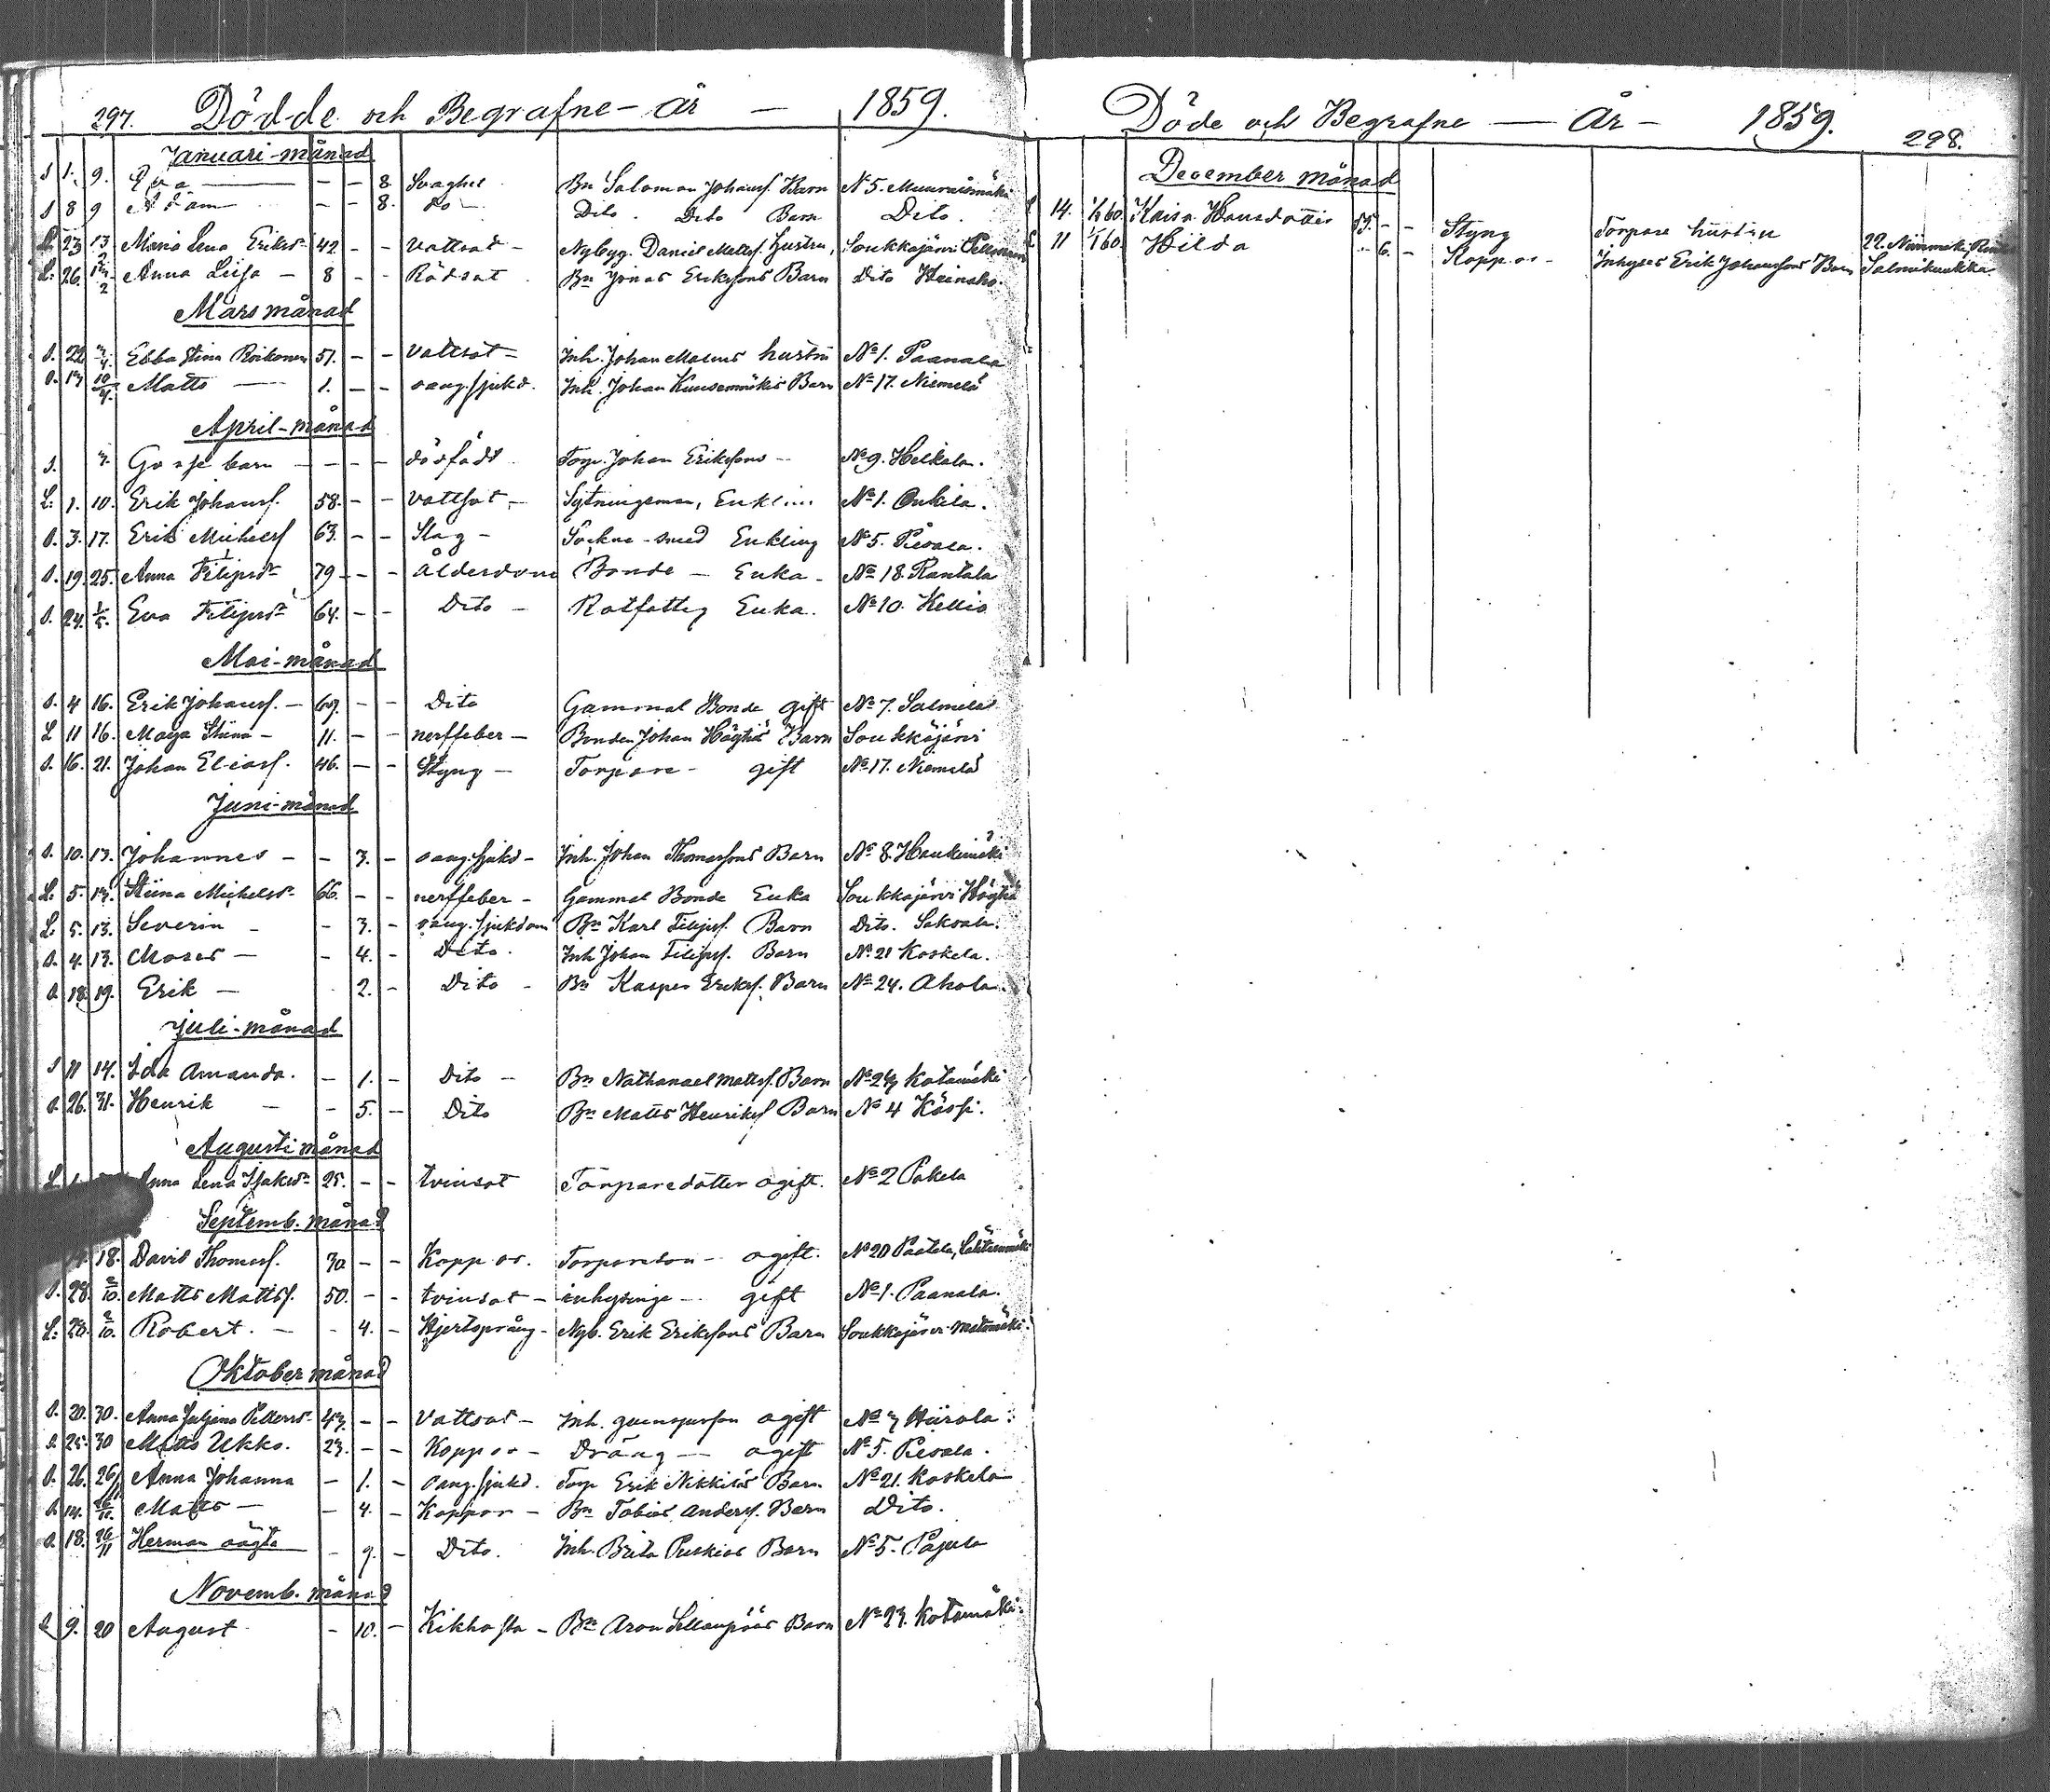 297. Dödde och Begrafne – år – 1859.
Januari-månad
S 1. 9. Eva – – – 8. Svaghet Bn Salomon Johanss. Barn No 5. Muuraismäki
S 8 9 Adam – – 8. Do – Dito. Dito Barn Dito.
L. 23 13/2 Maria Lena Eriksdr 42 – – Vattsot – Nybyg. Daniel Matts. Hustru, Soukkajärvi
L. 26. 13/2 Anna Liisa – 8 – – Rödsot Bn Jonas Erikssons Barn Dito
Mars månad
S. 22 Ebba Stina Roikonen 51. – – Vattsot – Inh. Johan hustru No 1. Paanala
S. 17 10/4. Matts – 1. – – aangsjukd. Inh. Johan Kuusenmäkis Barn No 17. Niemelä
April-månad
S. 7. Gosse barn – – – – dödfödt. Torp. Johan Erikssons – No 9. Heikala.
L. 1. 10. Erik Johanss. 58. – – Vattsot – Sytningsman, Enkling No 1. Onkila.
S. 3. 17. Erik Michelss 63. – – Slag – Sockne-smed Enkling No 5. Piesala.
S. 19 25. Anna Filipsdr 79 – – – ålderdom Bonde – Enka – No 18. Rantala
S. 24. 1/5. Eva Filipsdr 64. – – Dito – Rotfattig Enka. No 10. Kellio
Mai-månad
S. 4 16. Erik Johanss. – 69. – – Dito Gammal Bonde gift No 7. Salmela
L 11 16. Maja Stiina – 11. – – nerffeber – Bonden Johan Högtiä Barn Soukkojärvi
S. 16. 21. Johan Eliass. 46. – – Styng – Torpare – gift No 17. Niemelä
Juni-månad
S. 10. 13. Johannes – – 3. – aangsjukd – Inh. Johan Thomassons Barn No 8. Haukimäki
L. 5. 13. Stiina Michelsdr 66. – – nerffeber – Gammal Bonde Enka Soukkajärvi Högtiä
L. 5. 13. Severin – – 3. – aangsjukdom Bn Karl Filipss. Barn Dito. Saksala.
S. 4. 13. Moses – – 4. – Dito. Inh Johan Filipss. Barn No 21 Koskela.
S. 18. 19. Erik – 2. – Dito – Bn Kasper Erikss. Barn No 24. Ahola
Juli-månad
S 11 14. Ida Amanda. – 1. – Dito – Bn Nathanael Mattss. Barn No 23 Kotamäki
S. 26. 31. Henrik – – 5. – Dito Bn Matts Henrikss Barn No 4 Kässi.
Augusti månad
Anna Lena Isaksdr 25. – – tvinsot Torparedotter ogift. No 2 Pakela
Septemb. månad
18. David Thomass. 30. – – Koppor. Torpareson – ogift. No 20 Paatela,
S. 28. 2/10. Matts Mattss. 50. – – tvinsot – inhysinge – gift No 1. Paanala.
L. 20. 2/10. Robert. – – 4. – Hjertsprång – Nyb. Erik Erikssons Barn Soukkajärvi
Oktober månad
S. 20. 30. Anna Juljana Pettersdr 43. – – Vattsot – Inh. qvinsperson ogift No 3 Hiirola.
S. 25. 30 Matts Ukko. 23. – – Koppor – Dräng – ogift No 5. Piesala.
S. 26. 26/11 Anna Johanna – 1. – aangsjukd. Torp Erik Nikkiläs Barn No 21. Koskela
S. 14. Matts – – 4. – Koppor – Bn Tobias Anderss. Barn Dito.
S. 18. 26/11 Herman oägta – 9. – Dito. Inh. Brita Puskias Barn No 5. Pajula
Novemb. månad
S. 9. 20 August – 10. – Kikhosta – Bn Aron Sillanpääs Barn No 23. Kotamäki.
Döde och Begrafne – År – 1859. 298.
December månad
14. 1/1 60. Kaisa Hansdotter 55. – – Styng Torpare hustru 22. Niinimäki
11 1/1 60. Hilda – 6. – Koppor – Inhyses Erik Johanssons Barn Salmikukka.